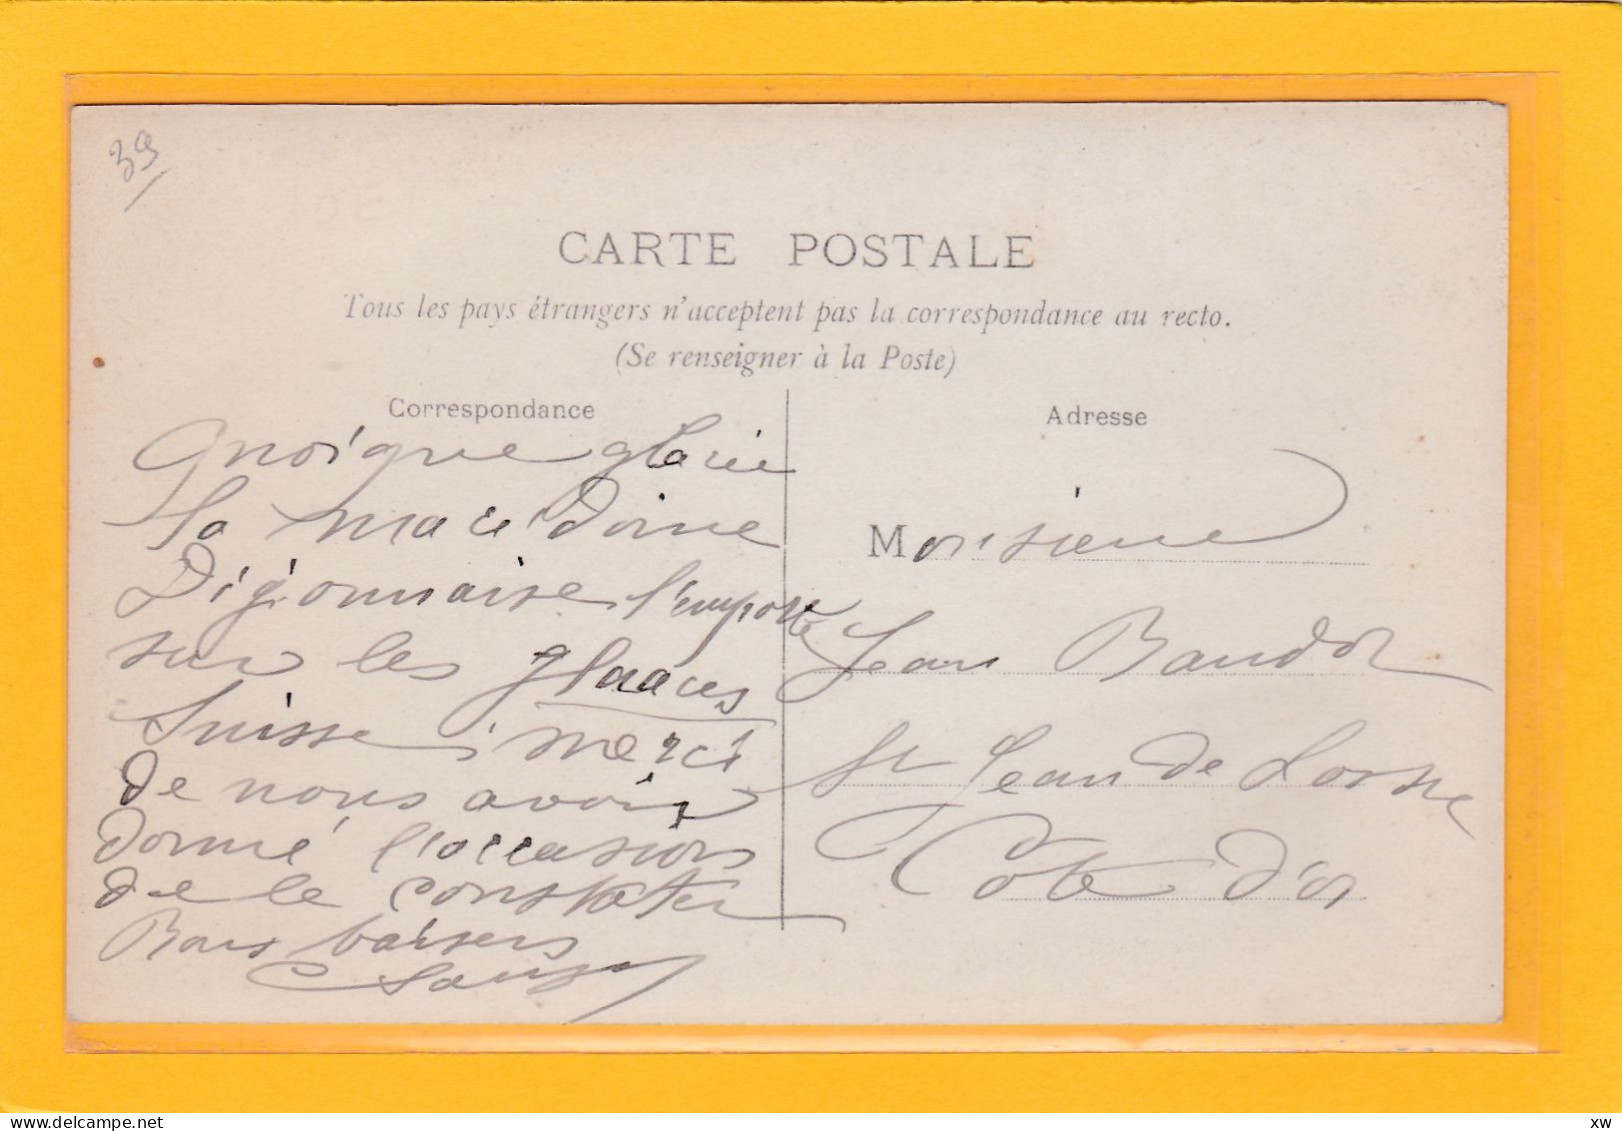 39
CARTE POSTALE
Tous les pays étrangers n'acceptent pas la correspondance au recto.
(Se renseigner à la Poste)
Correspondance
Quoique glacée
la macédoine
Digionnaise l'emporte
sur les glaaces
Suisse, merci
de nous avoir
donné l'occasion
de le constater
Bons baisers
Adresse
Monsieur
Jean Baudot
St Jean de Losne
Côte d'or
xw